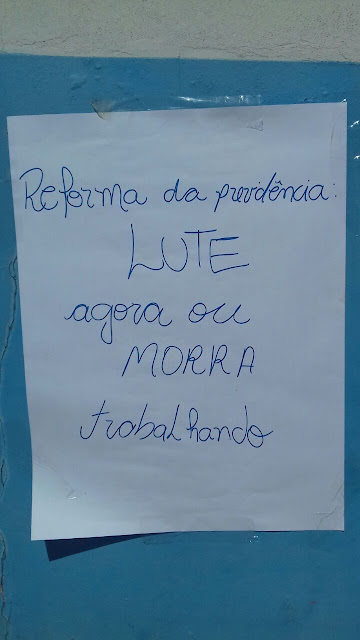 Reforma da previdência:
LUTE
agora ou
MORRA
trabalhando